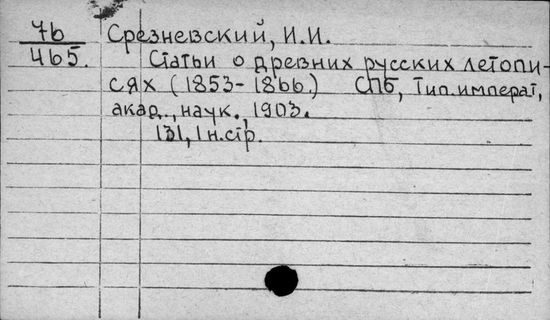 7б Срезневский, И.И.
465. Статьи о древних русских летопи-
сях (1853-1866) СПб, Тип.императ,
акад., наук., 1903.
131, 1 н.стр.